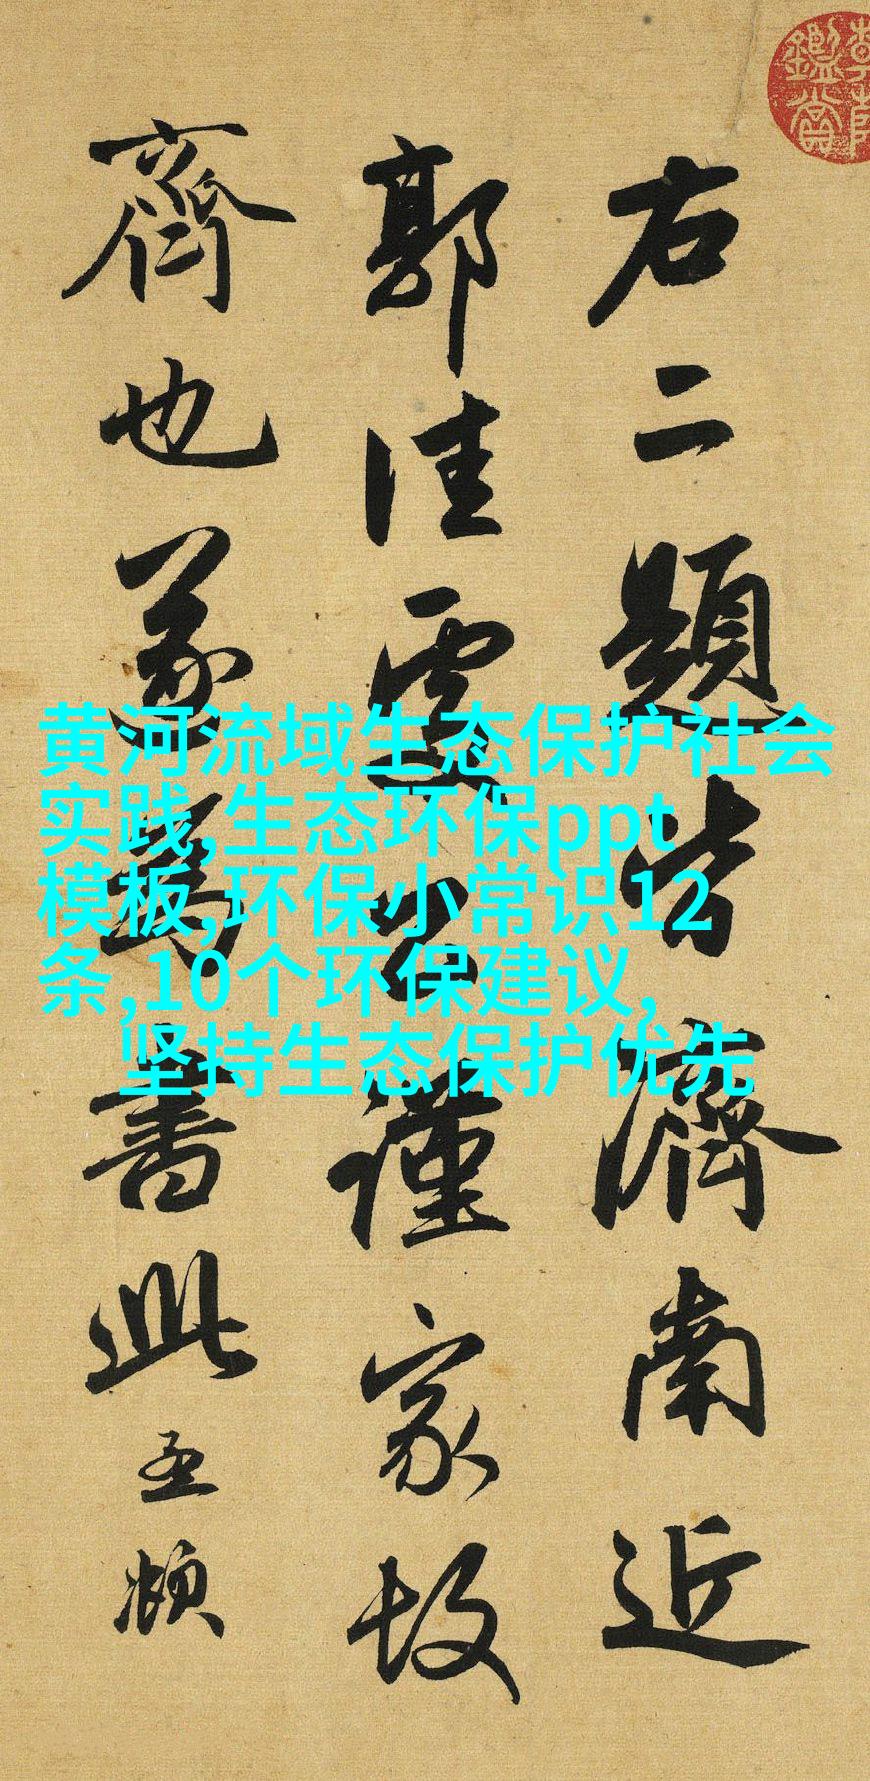 右二題皆濟南近
郭佳處公謹家故
齊也遂為書此孟頫
黄河流域生态保护社会
实践,生态环保ppt
模板,环保小常识12
条,10个环保建议,
坚持生态保护优先